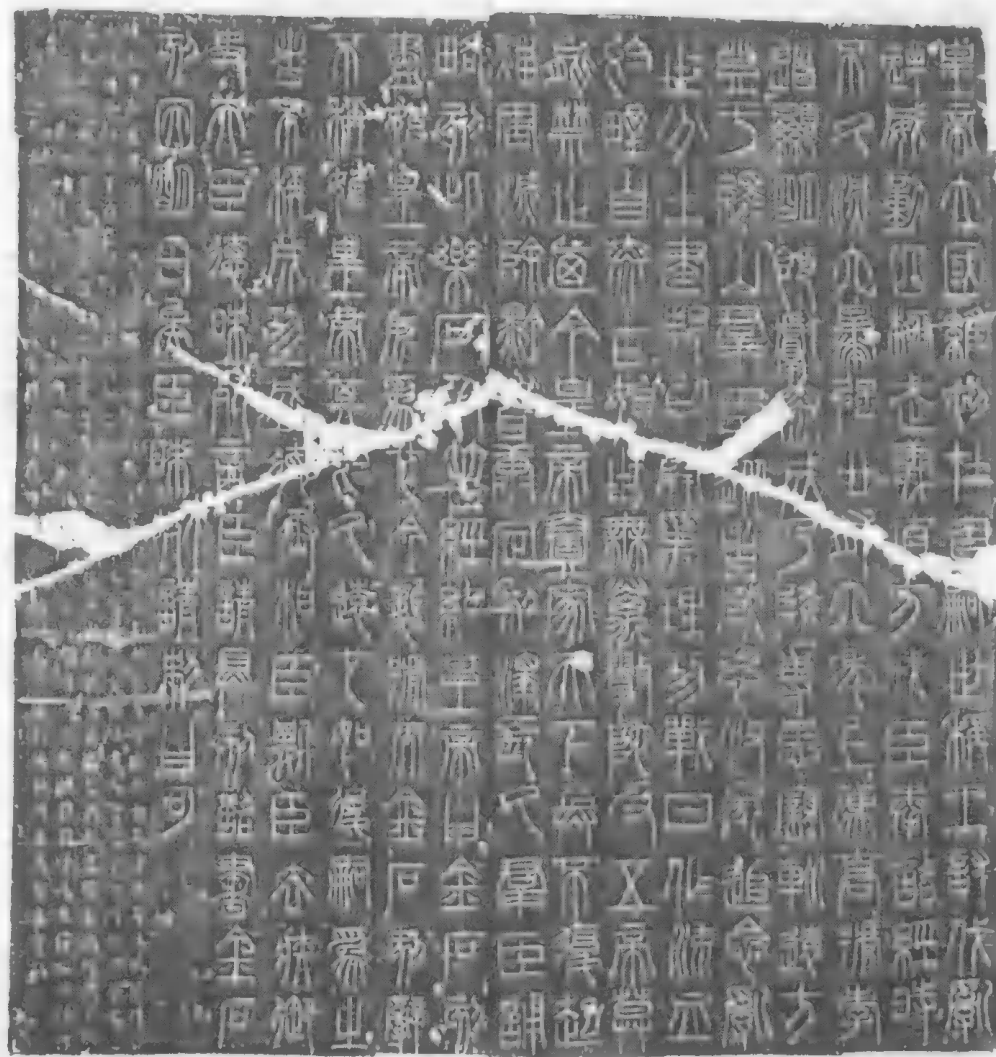 皇帝立國維初在昔嗣世稱王討伐亂
逆威動四極武義直方戎臣奉詔經時
不久滅六暴強廿有六年上薦高號孝
道顯明既獻泰成乃降專惠親巡遠方
登于繹山群臣從者咸思攸長追念亂
世分土建邦以開爭理功戰日作流血
於野自泰古始世無萬數陀及五帝莫
能禁止廼今皇帝壹家天下兵不復起
災害滅除黔首康定利澤長久群臣誦
略刻此樂石以著經紀皇帝曰金石刻
盡始皇帝所為也今襲號而金石刻辭
不稱始皇帝其於久遠也如後嗣為之
者不稱成功盛德丞相臣斯臣去疾御
史夫臣德昧死言臣請具刻詔書金石
刻因明白矣臣昧死請制曰可